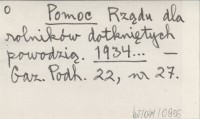 o
Pomoc Rządu dla
rolników dotkniętych
powodzią. 1934... –
Gaz. Podh. 22, nr 27.